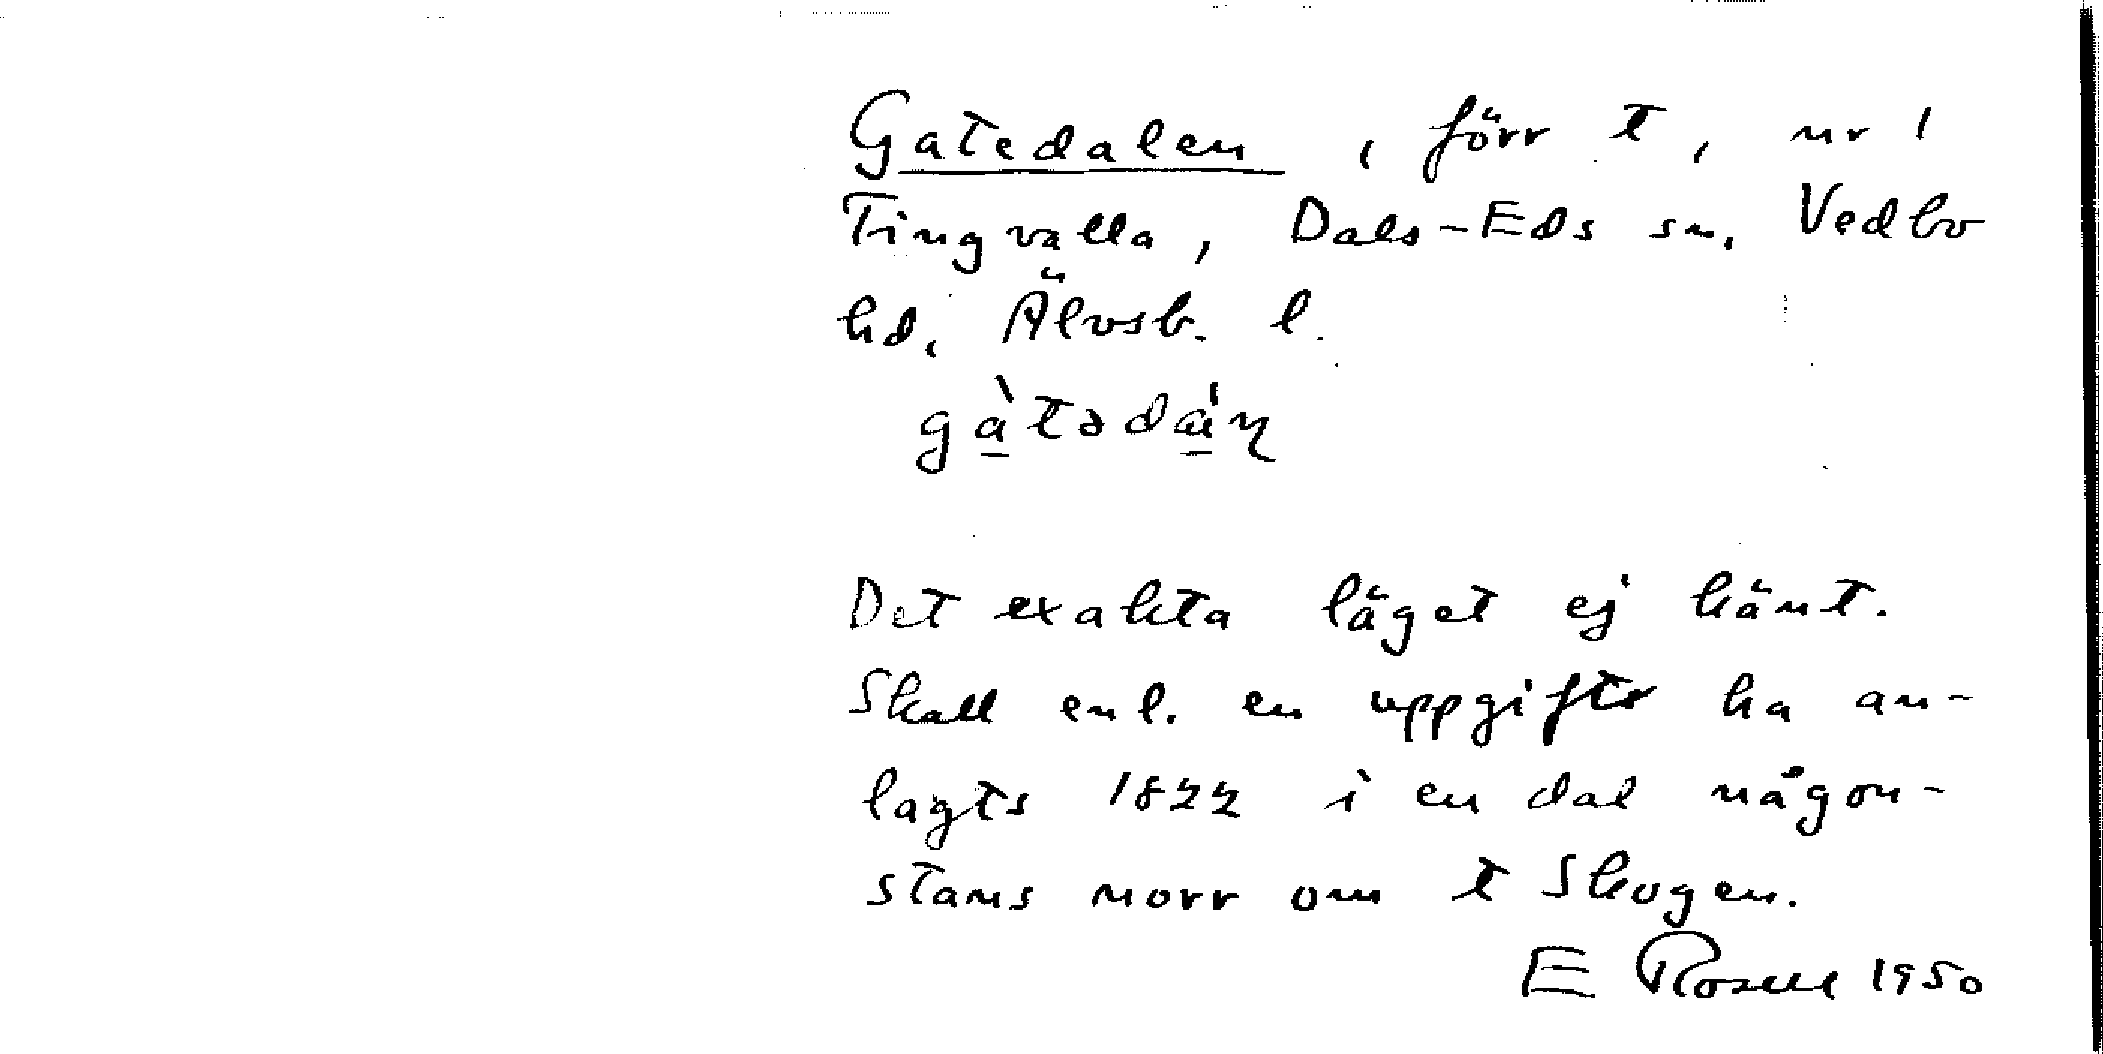 Gatedalen, förr t, nr 1
Tingvalla, Dals-Eds sn, Vedbo
hd, Älvsb. l.
gàtədá̀ɳ
Det exakta läget ej känt.
Skall enl. en uppgift ha an-
lagts 1822 i en dal någon-
stans norr om t Skogen.
E Rosell 1950